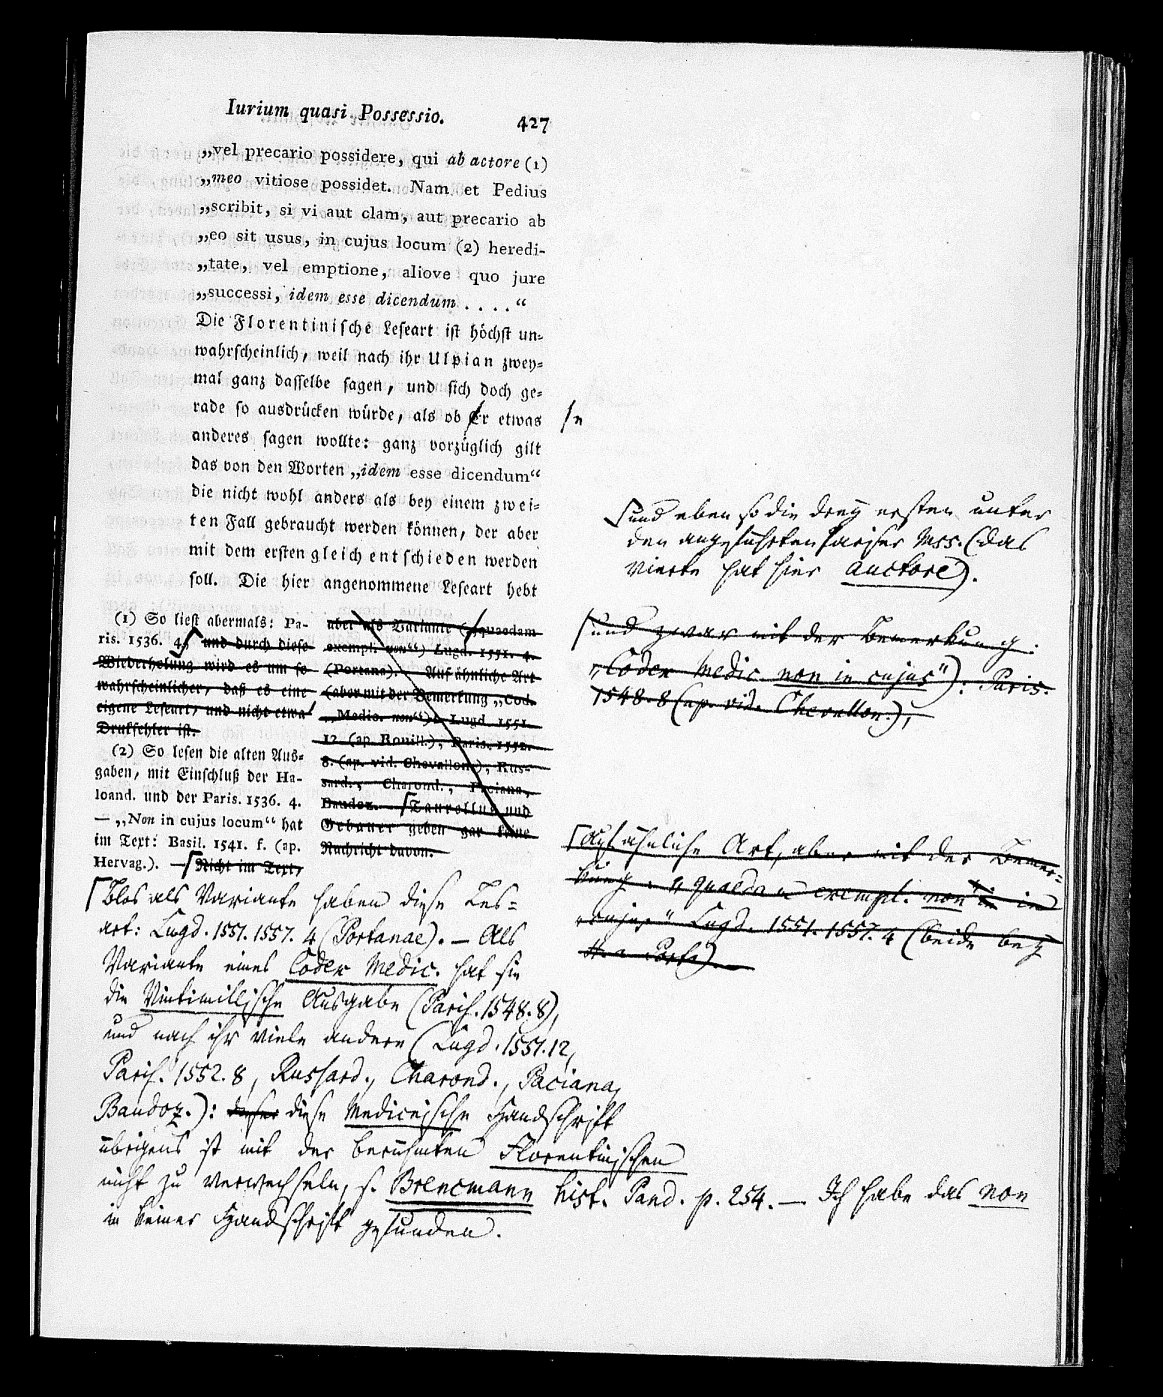 Iurium quasi Possessio. 427
„vel precario possidere, qui ab actore (1)
„meo vitiose possidet. Nam et Pedius
„scribit, si vi aut clam, aut precario ab
„eo sit usus, in cujus locum (2) heredi-
„tate, vel emptione, aliove quo jure
„successi, idem esse dicendum . . . . “
Die Florentinische Leseart ist höchst un-
wahrscheinlich, weil nach ihr Ulpian zwey-
mal ganz dasselbe sagen, und sich doch ge-
rade so ausdrücken würde, als ob Er etwas
anderes sagen wollte: ganz vorzüglich gilt
das von den Worten „idem esse dicendum“
die nicht wohl anders als bey einem zwei-
ten Fall gebraucht werden können, der aber
mit dem ersten gleich entschieden werden
soll. Die hier angenommene Leseart hebt
(1) So liest abermals: Pa-
ris. 1536. 4, und durch diese
Wiederholung wird es um so
wahrscheinlicher, daß es eine
eigene Leseart, und nicht etwa
Druckfehler ist.
(2) So lesen die alten Aus-
gaben, mit Einschluß der Ha-
loand. und der Paris. 1536. 4.
— „Non in cujus locum“ hat
im Text: Basil. 1541. f. (ap.
Hervag.). — Nicht im Text,
aber als Variante („quaedam
exempl. non“) Lugd. 1551. 4.
(Portana). Auf ähnliche Art
(aber mit der Bemerkung „Cod.
Medic. non“): Lugd. 1551.
12. (ap. Rouill.), Paris. 1552.
8. (ap. vid. Chevallon.), Rus-
sard., Charond., Paciana,
Baudoz. — Taurellus und
Gebauer geben gar keine
Nachricht davon.
und eben so die drey ersten unter
den angeführten Pariser Mss. (das
vierte hat hier auctore).
und zwar mit der Bemerkung:
„Codex Medic. non in cujus“): Paris.
1548. 8 (ap. vid. Chevallon.),
Auf ähnliche Art, aber mit der Bemer-
kung: „quaedam exempl. non in
cujus“ Lugd. 1551. 1557. 4 (beide bey
H. a Porta). —
Blos als Variante haben diese Les-
art: Lugd. 1551. 1557. 4 (Portanae). — Als
Variante eines Codex Medic. hat sie
die Vintimillische Ausgabe (Paris. 1548. 8),
und nach ihr viele andere (Lugd. 1551. 12,
Paris. 1552. 8, Russard., Charond., Paciana,
Baudoz.): dieser diese Mediceische Handschrift
übrigens ist mit der berühmten Florentinischen
nicht zu verwechseln, s. Brencmann hist. Pand. p. 254. — Ich habe das non
in keiner Handschrift gefunden.